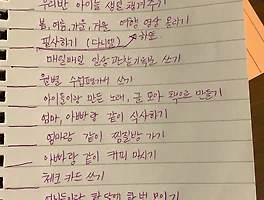 우리반 아이들 생일 챙겨주기
봄, 여름, 가을, 겨울 여행 영상 올리기
필사하기 (다니엘)
매일매일 일상 관찰기록도 쓰기
월별 수업평가서 쓰기
아이들이랑 만든 노래, 글 모아 책으로 만들기
엄마, 아빠랑 같이 식사하기
엄마랑 같이 찜질방 가기
아빠랑 같이 커피 마시기
체크 카드 쓰기
한달에 한번 모이기